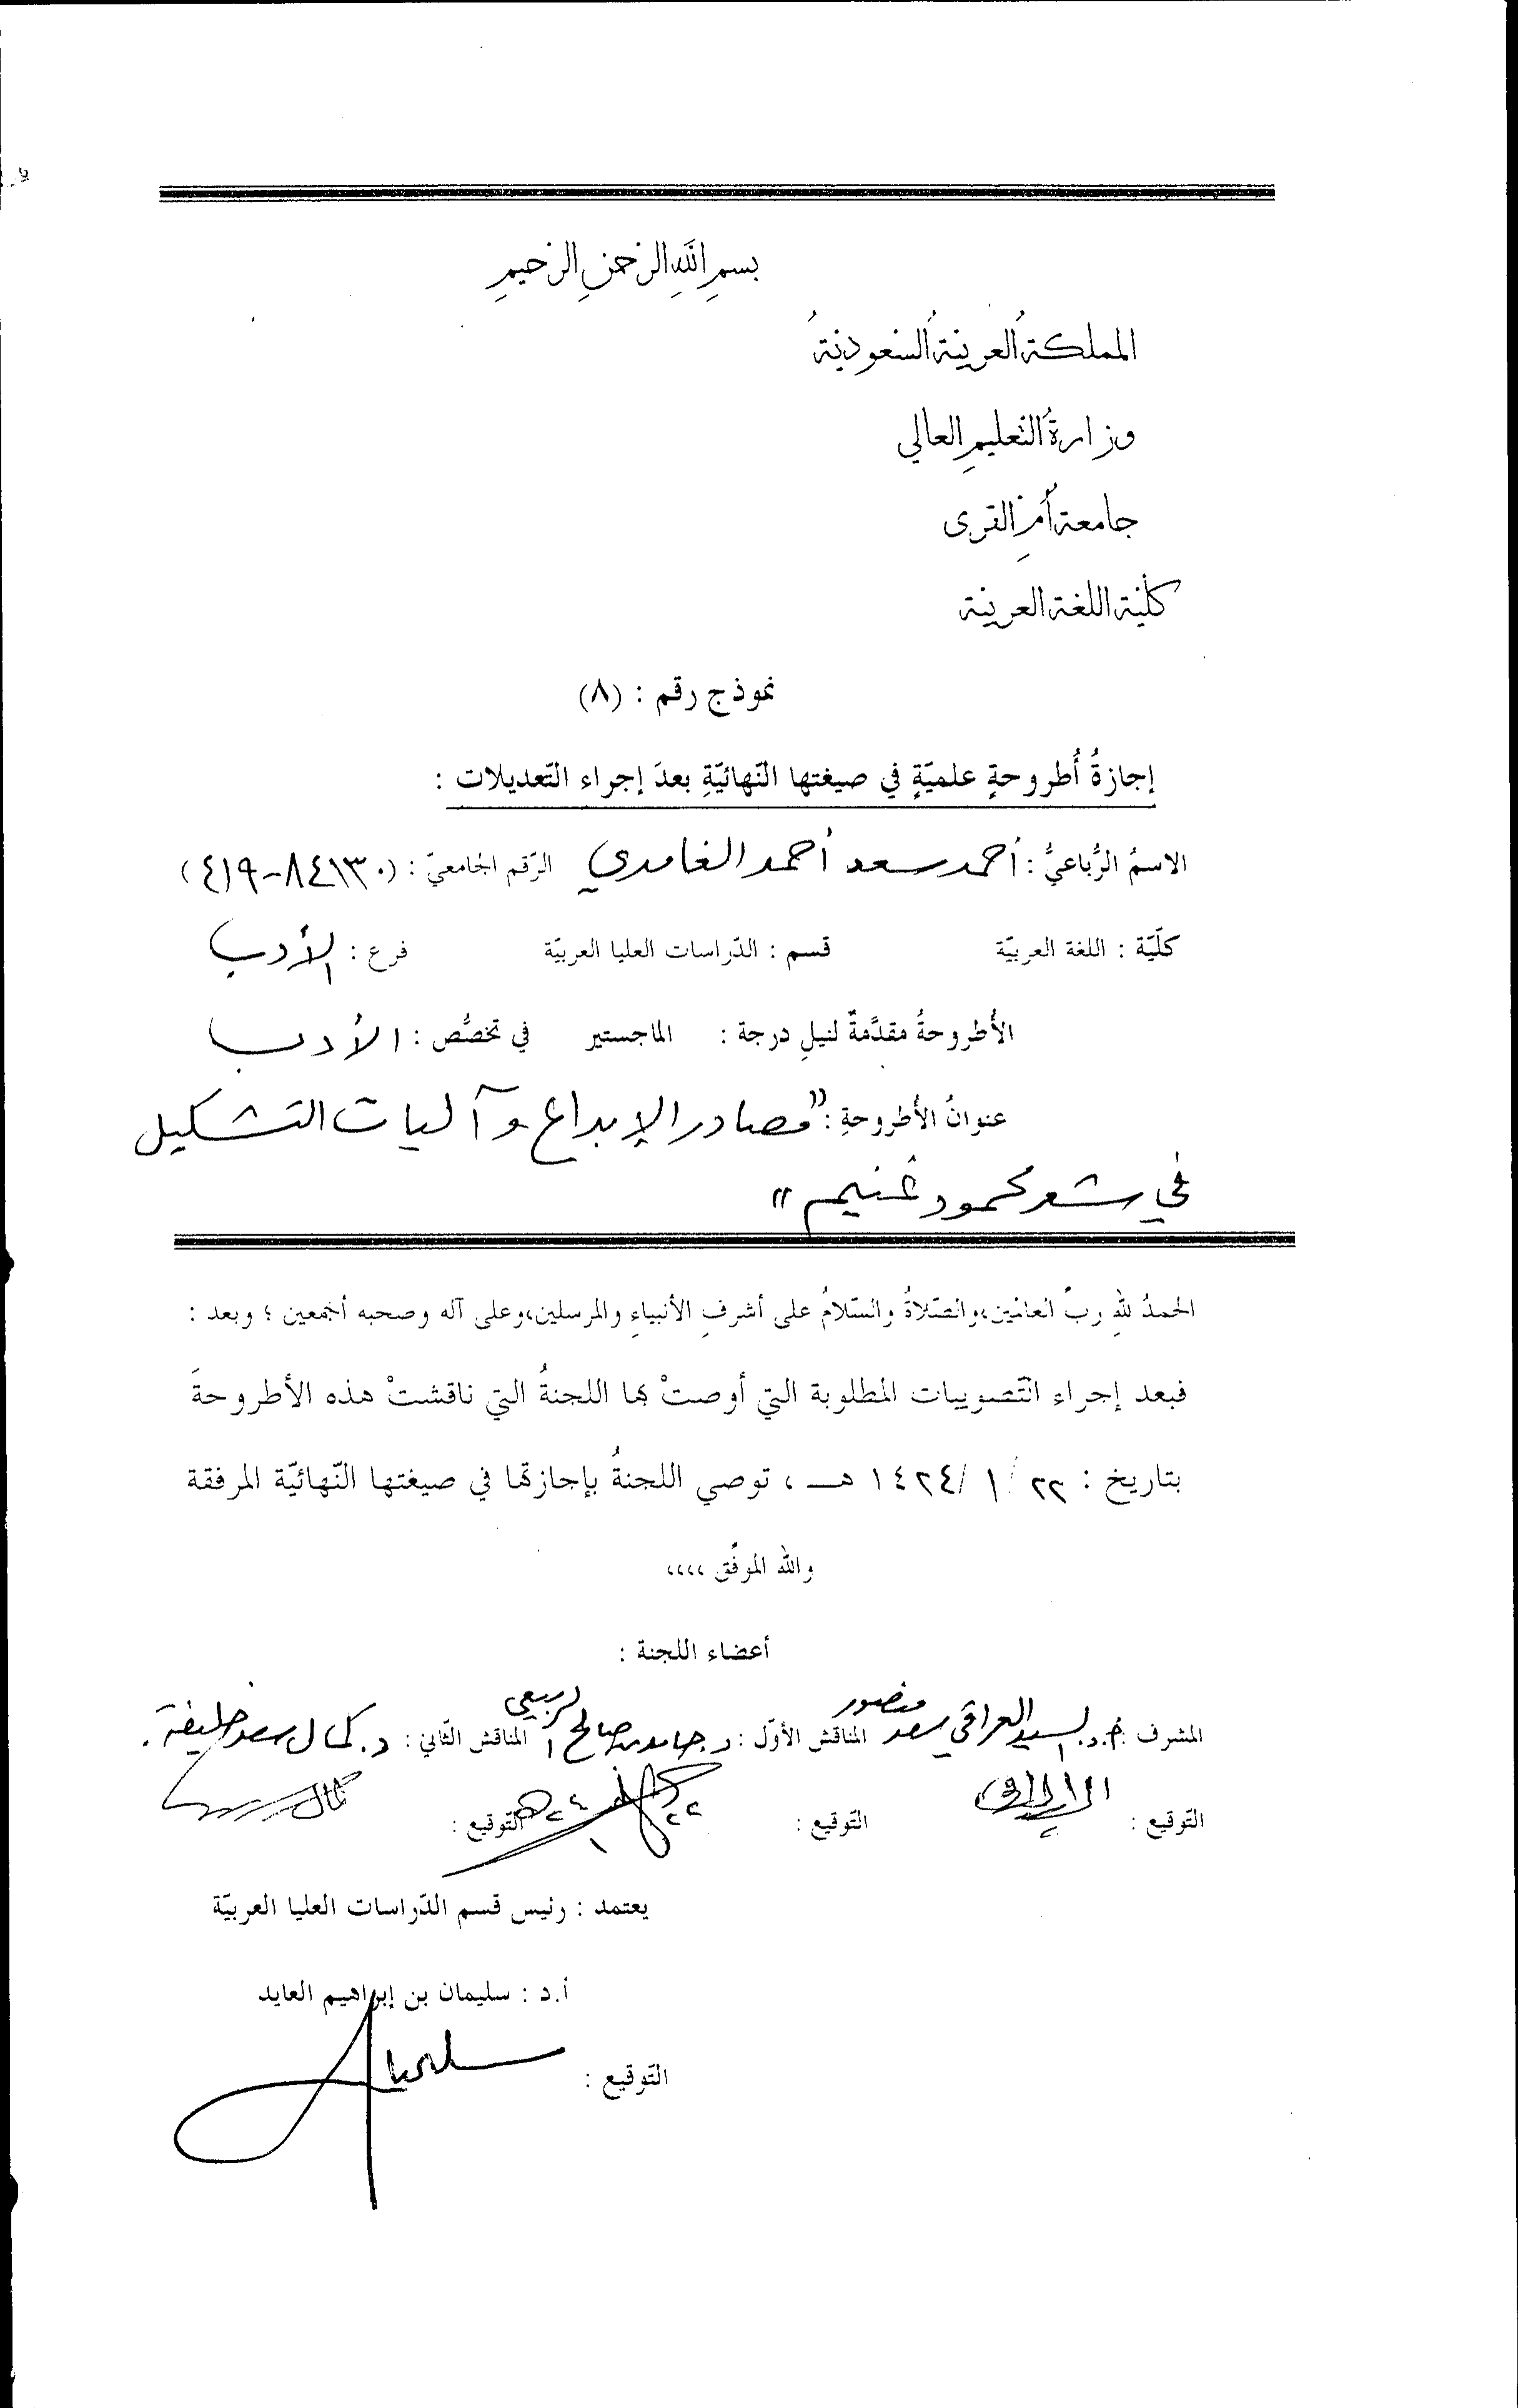 بسمِ اللهِ الرّحمنِ الرّحيمِ
المملكةُ العربيّةُ السّعوديّةُ
وزارةُ التّعليمِ العالي
جامعة أُمِّ القرى
كلّيّة اللغة العربيّة
نموذج رقم : (٨)
إجازةُ أُطروحةٍ علميّةٍ في صيغتها النّهائيّةِ بعدَ إجراء التّعديلات :
الاسمُ الرُّباعيُّ : أحمد سعد أحمد الغامدي الرّقم الجامعيّ : (٤١٩-٨٤١٣٠)
كلّيّة : اللغة العربيّة قسم : الدّراسات العليا العربيّة فرع : الأدب
الأُطروحةُ مقدَّمةٌ لنيلِ درجة : الماجستير في تخصُّص : الأدب
عنوانُ الأُطروحةِ : " مصادر الإبداع وآليات التشكيل
في شعر محمود غنيم "
الحمدُ للهِ ربّ العالمين،والصّلاةُ والسّلامُ على أشرفِ الأنبياءِ والمرسلين،وعلى آله وصحبه أجمعين ؛ وبعد :
فبعد إجراء التّصويبات المطلوبة التي أوصتْ بها اللجنةُ التي ناقشتْ هذه الأطروحةَ
بتاريخ : ٢٢ / ١ /١٤٢٤ هـ ، توصي اللجنةُ بإجازتها في صيغتها النّهائيّة المرفقة
والله الموفّق ،،،،
أعضاء اللجنة :
المشرف : أ.د. السيد العراقي سعد منصور المناقش الأوّل : د. حامد صالح الربيعي المناقش الثّاني : د. كمال سعد خليفة .
التّوقيع : التّوقيع : ٢٢ ١ ٢٤هـ التّوقيع :
يعتمد : رئيس قسم الدّراسات العليا العربيّة
أ.د : سليمان بن إبراهيم العايد
التّوقيع : سليمان